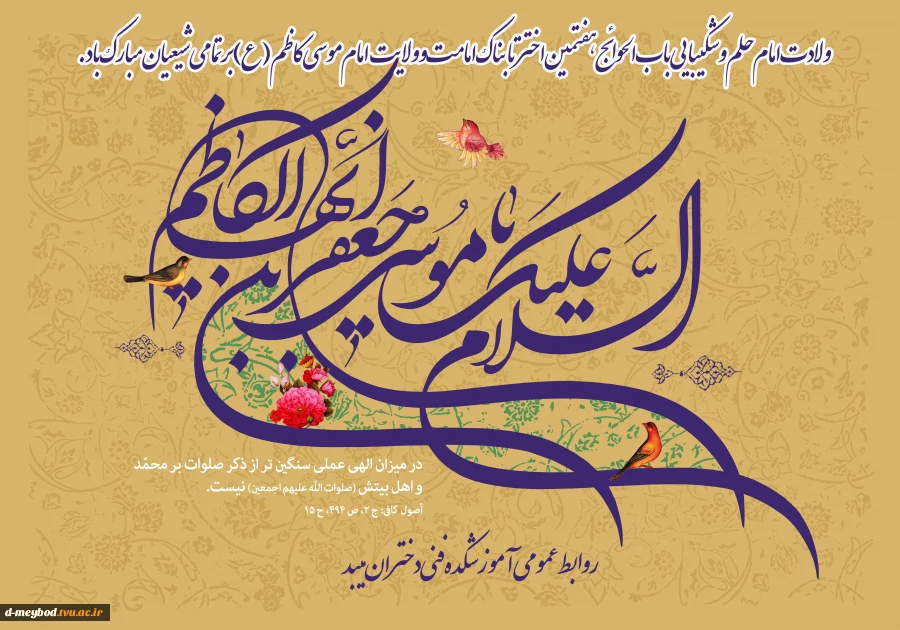 ولادت امام حلم و شکیبایی باب الحوائج، هفتمین اختر تابناک امامت و ولایت امام موسی کاظم (ع) بر تمامی شیعیان مبارک باد.
السلام علیک یا موسی بن جعفر ایها الکاظم
در میزان الهی عملی سنگین تر از ذکر صلوات بر محمّد
و اهل بیتش (صلوات الله علیهم اجمعین) نیست.
اصول کافی: ج ۲، ص ۴۹۴، ح ۱۵
روابط عمومی آموزشکده فنی دختران میبد
d-meybod.tvu.ac.ir